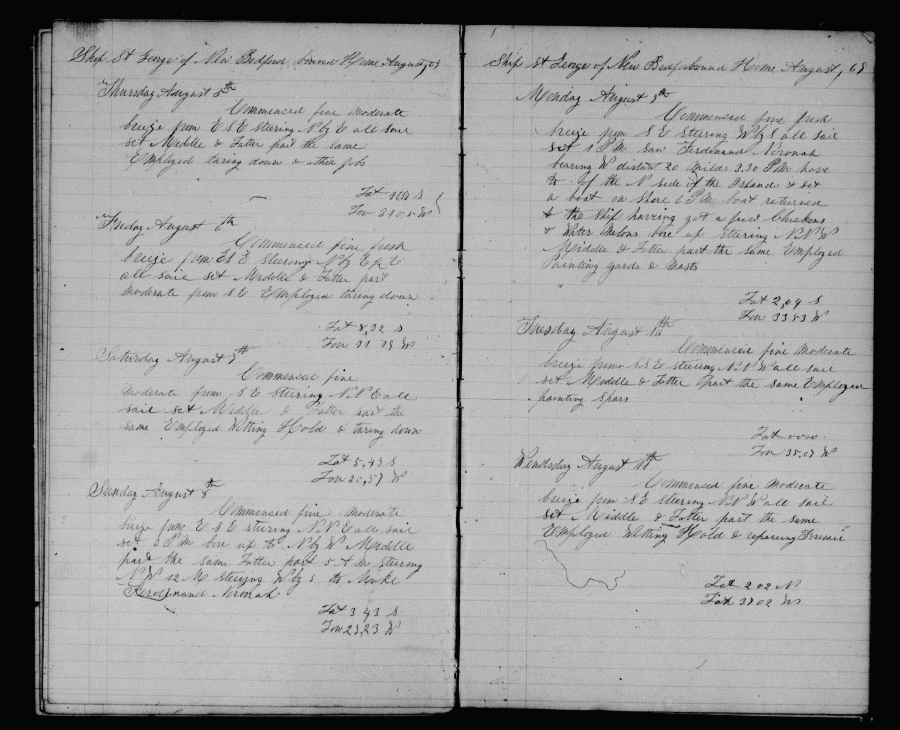 Ship St George of New Bedford bound Home August, 69
Thursday August 5th
Commenced fine moderate
breeze from E S E steering N by E all sail
set Middle & Latter part the same
Employed taring down & other jobs
Lat S
Lon 31 05 W
Friday August 6th
Commenced fine fresh
breeze from E S E steering N by E
all sail set Middle & Latter part
moderate from S E Employed taring down
Lat 8,32 S
Lon W
Saturday August 7th
Commenced fine
moderate from S E steering N N E all
sail set Middle & Latter part the
same Employed Wetting Hold & taring down
Lat 5,49 S
Lon 30,57 W
Sunday August 8th
Commenced fine moderate
breeze from E S E steering N N E all sail
set P M bore up to N by W Middle
part the same Latter part 5 A M steering
N W 12 M steering W by S to Make
Ferdinand Noronah
Lat 3 43 S
Lon 29,23 W
Ship St George of New Bedf bound Home August, 69
Monday August 9th
Commenced fine fresh
breeze from S E Steering W by S all sail
set 1 P M saw Ferdinand Noronah
bearing W distant 20 miles 3,30 P M hove
to of the N side of the Island & set
a boat on Shore 6 P M boat returned
& the Ship having got a few Chickens
& Water Melons bore up Steering N N W
Middle & Latter part the same Employed
Painting yards & Masts
Lat 2,04 S
Lon 33 53 W
Tuesday August 10
Commenced fine moderate
breeze from S S E steering N N W all sail
set Middle & Latter part the same Employed
painting Spars
Lat 0000
Lon 35,07 W
Wendsday August 11
Commenced fine moderate
breeze from S E steering N N W all sail
set Middle & Latter part the same
Employed Wetting Hold & repairing
Lat 2 02 N
Lat 37 02 W